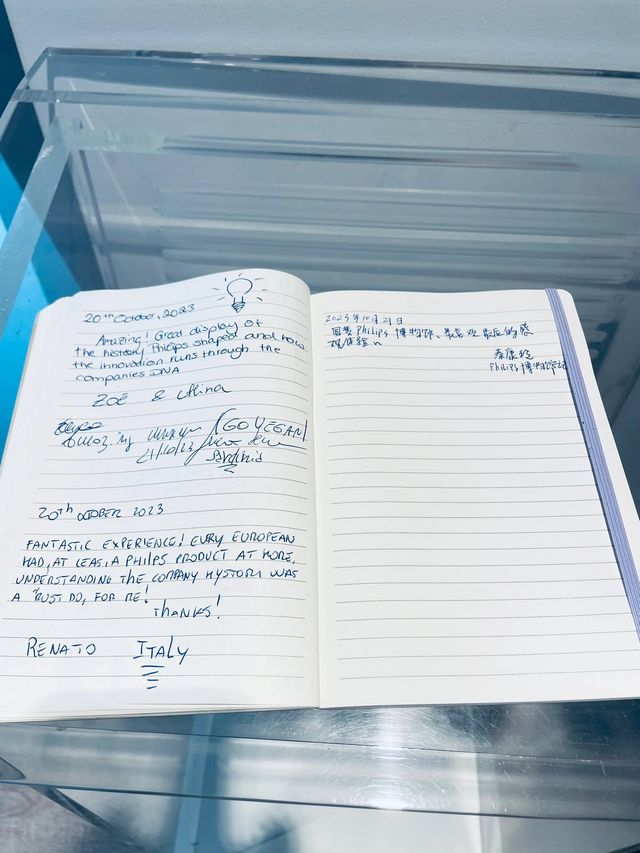 20th October, 2023
Amazing! Great display of
the history Philips shaped and how
the innovation runs through the
companies DNA
ZOË & Alina
GO VEGAN!
21/10/23
20th OCTOBER 2023
FANTASTIC EXPERIENCE! EVRY EUROPEAN
HAD, AT LEAS, A PHILPS PRODUCT AT HOME,
UNDERSTANDING THE COMPANY HYSTORY WAS
A "MUST DO, FOR ME!
THANKS!
RENATO ITALY
2023年10月21日
Philips 博物馆、最喜欢最后的感
观体验
Philips 博物馆